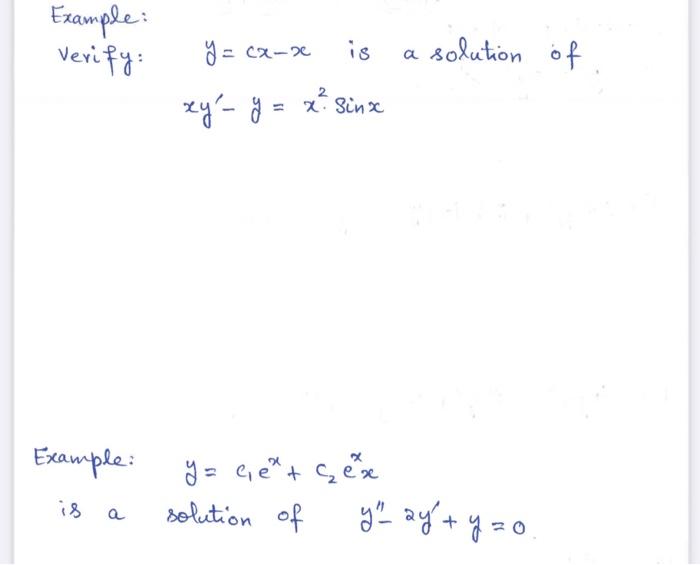 Example:
Verify: y = cx - x is a solution of
xy' - y = x². sinx
Example: y = c₁eˣ + c₂eˣx
is a solution of y" - 2y' + y = 0.